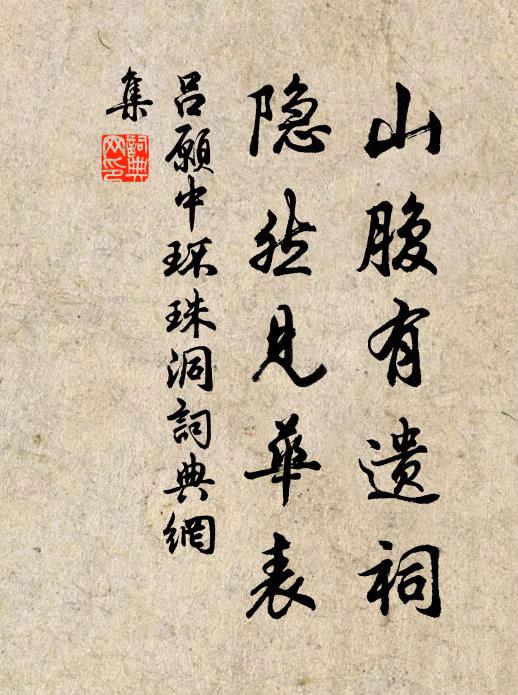 山腹有遗祠
隐然见华表
吕愿中环珠洞詞典網
集
詞典
网印